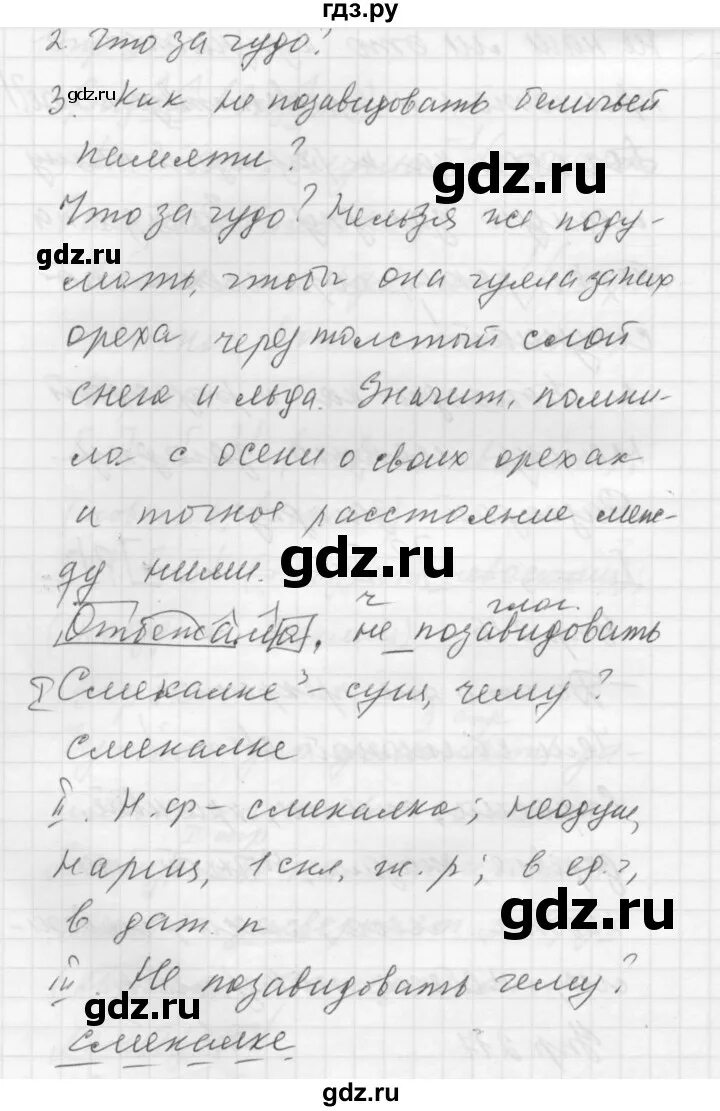 гдз.ру
2. Что за чудо?
gdz.ru
3. Как не позавидовать беличьей
памяти?
gdz.ru
Что за чудо? Нельзя же поду-
gdz.ru
мать, чтобы она чуяла запах
ореха через толстый слой
снега и льда. Значит, помни-
ла с осени о своих орехах
и точное расстояние меж-
ду ними.
gdz.ru
ч глаг.
Отбежала, не позавидовать
I Смекалке³ - сущ, чему?
смекалке
II. Н.ф - смекалка; неодуш,
нариц, 1 скл, ж. р; в ед. ч,
gdz.ru
в дат. п
III. Не позавидовать чему?
gdz.ru
смекалке
gdz.ru